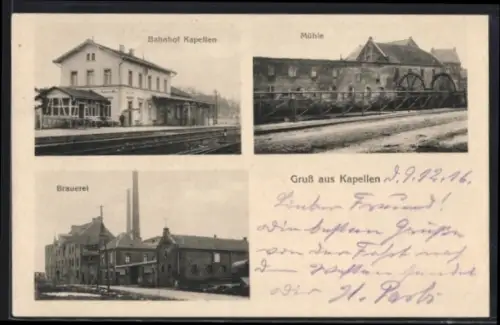 Bahnhof Kapellen
Mühle
Brauerei
Gruß aus Kapellen d. 9.12.16.
Lieber Freund!
die besten Grüße
von der Fahrt nach
dem Westen sendet